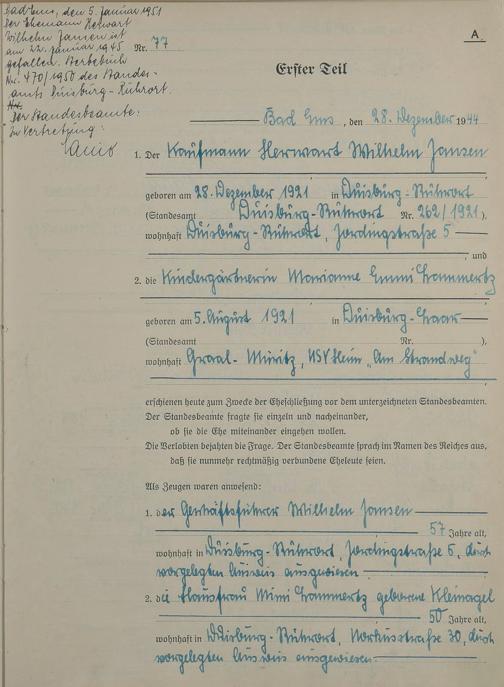 Bad Ems, den 5. Januar 1951
Der Ehemann Herwart
Wilhelm Jansen ist
am 22. Januar 1945
gefallen. Sterbebuch
Nr. 470/1950 des Standes-
amts Duisburg-Ruhrort.
Der Standesbeamte:
In Vertretung:
A
Nr. 77
Erster Teil
Bad Ems, den 28. Dezember 1944
1. Der Kaufmann Herwart Wilhelm Jansen
geboren am 28. Dezember 1921 in Duisburg-Ruhrort
(Standesamt Duisburg-Ruhrort Nr. 262/1921),
wohnhaft Duisburg-Ruhrort, Jordingstraße 5
und
2. die Kindergärtnerin Marianne Emmi Lammertz
geboren am 5. August 1921 in Duisburg-Laar
(Standesamt Nr. ),
wohnhaft Graal-Müritz, NSV Heim „Am Strandweg“
erschienen heute zum Zwecke der Eheschließung vor dem unterzeichneten Standesbeamten.
Der Standesbeamte fragte sie einzeln und nacheinander,
ob sie die Ehe miteinander eingehen wollen.
Die Verlobten bejahten die Frage. Der Standesbeamte sprach im Namen des Reiches aus,
daß sie nunmehr rechtmäßig verbundene Eheleute seien.
Als Zeugen waren anwesend:
1. der Geschäftsführer Wilhelm Jansen
57 Jahre alt,
wohnhaft in Duisburg-Ruhrort, Jordingstraße 5, durch
vorgelegten Ausweis ausgewiesen
2. die Hausfrau Mimi Lammertz geborene Kleinagel
50 Jahre alt,
wohnhaft in Duisburg-Ruhrort, Norkusstraße 30, durch
vorgelegten Ausweis ausgewiesen